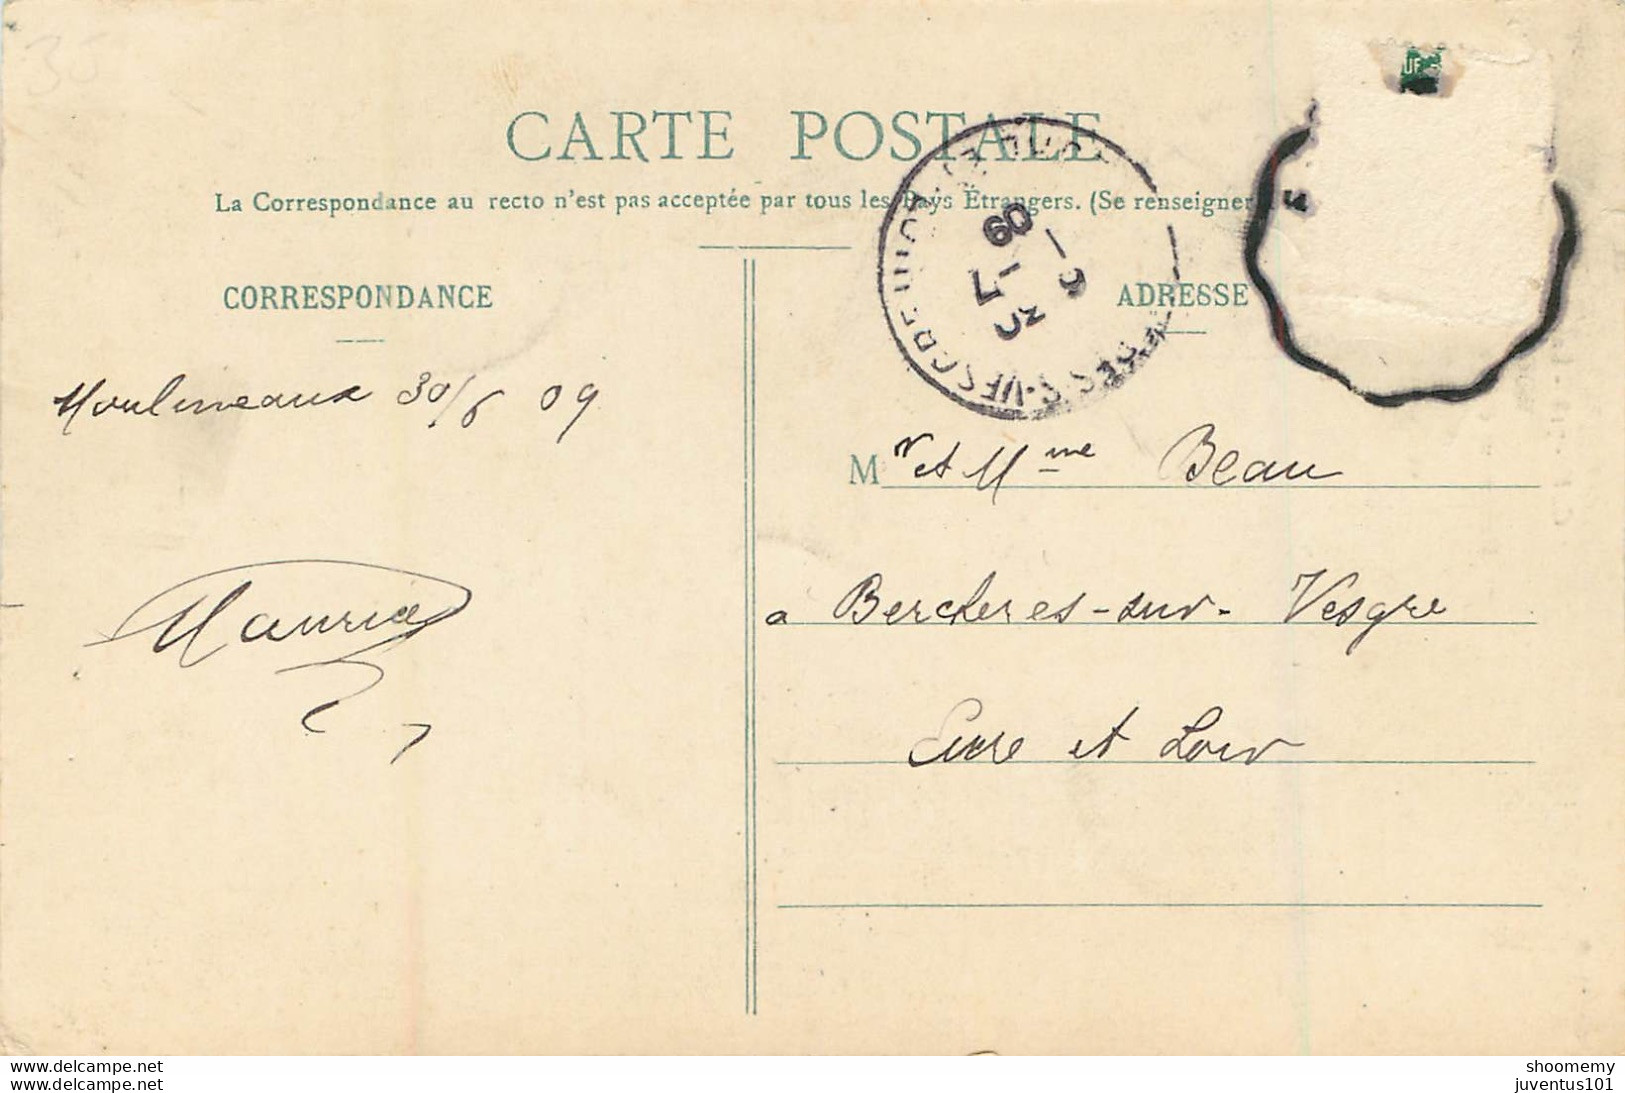 CARTE POSTALE
La Correspondance au recto n'est pas acceptée par tous les Pays Étrangers. (Se renseigner
CORRESPONDANCE
ADRESSE
Moulineaux 30/6 09
Mr et Mme Beau
Maurice
a Bercheres-sur-Vesgre
Eure et Loir
09
UF
delcampe.net
delcampe.net
shoomemy
juventus101